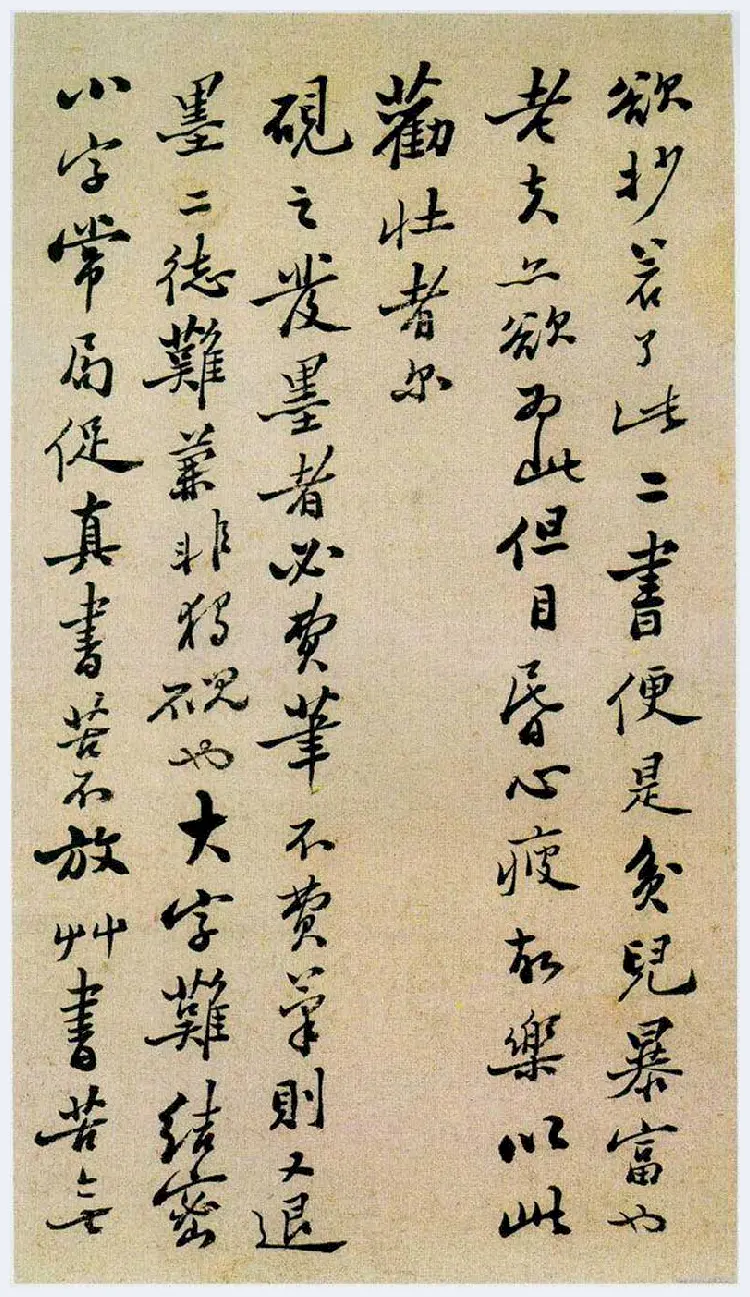 欲抄若了此二書便是貧兒暴富也
老夫亦欲為此但目昏心疲故樂以此
勸壯者尔
硯之發墨者必費筆不費筆則又退
墨二德難兼非獨硯也大字難結密
小字常局促真書苦不放草書苦無